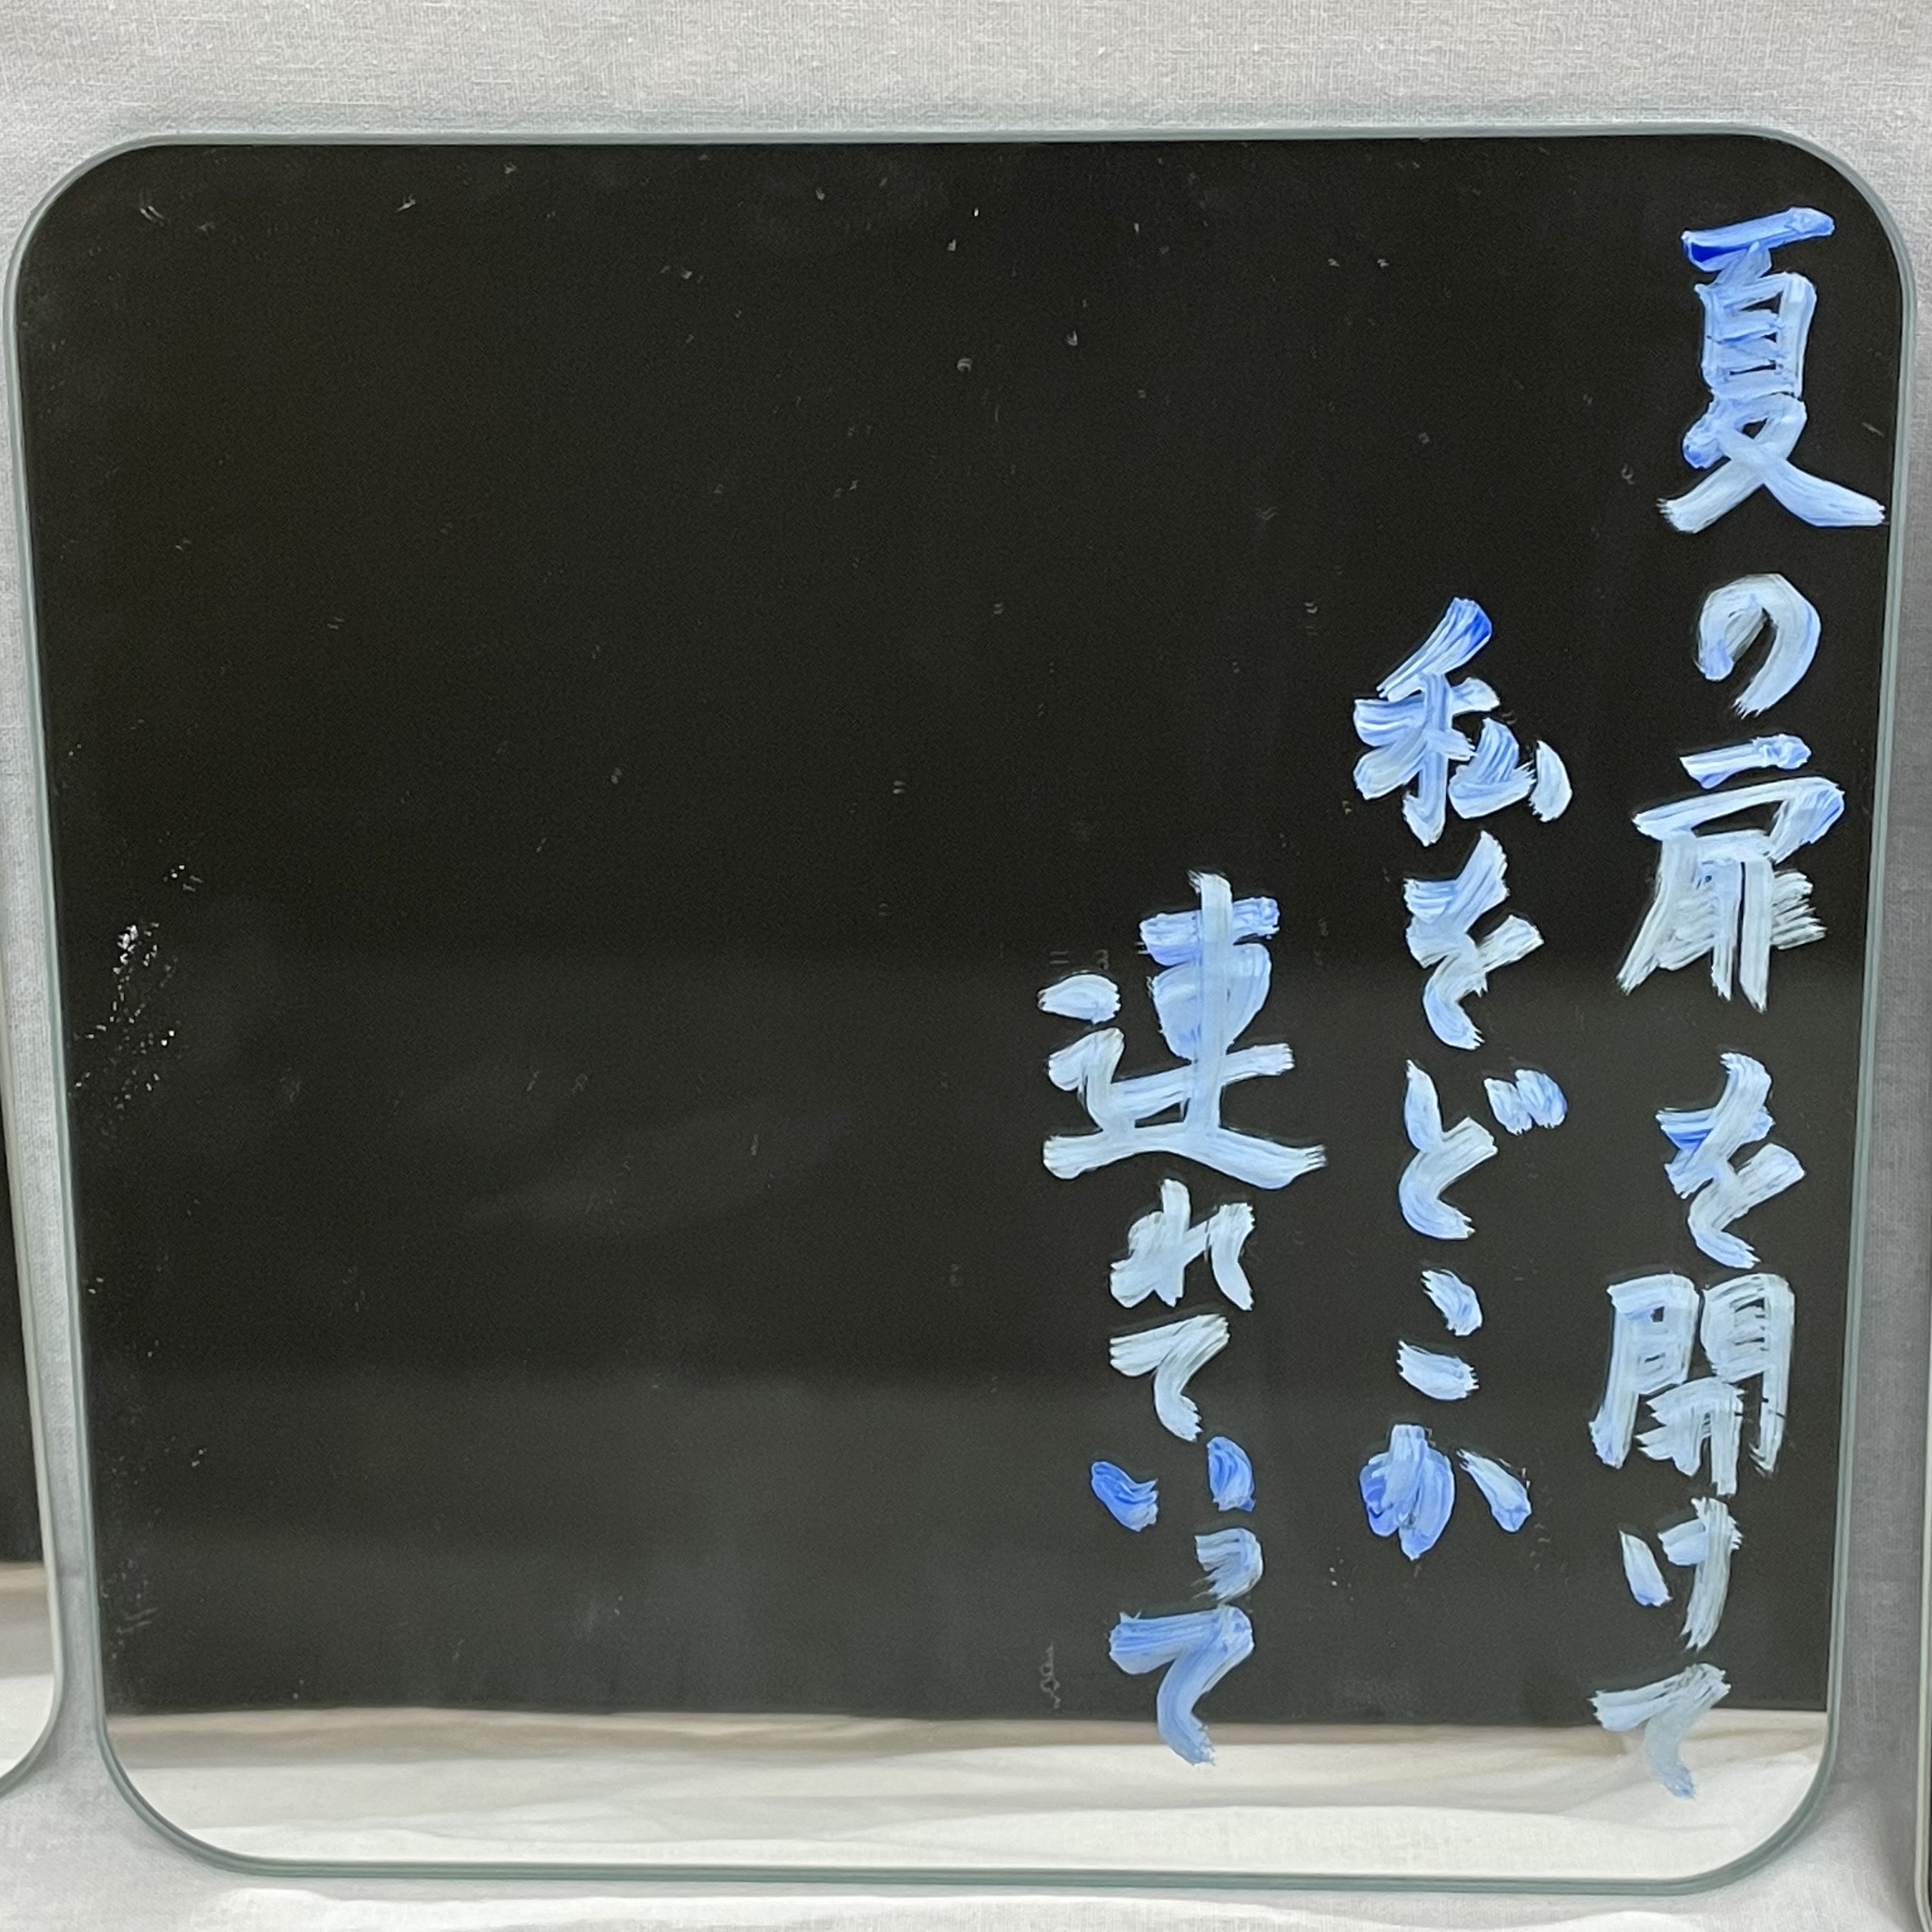 夏の扉を開けて
私をどこか
連れていって